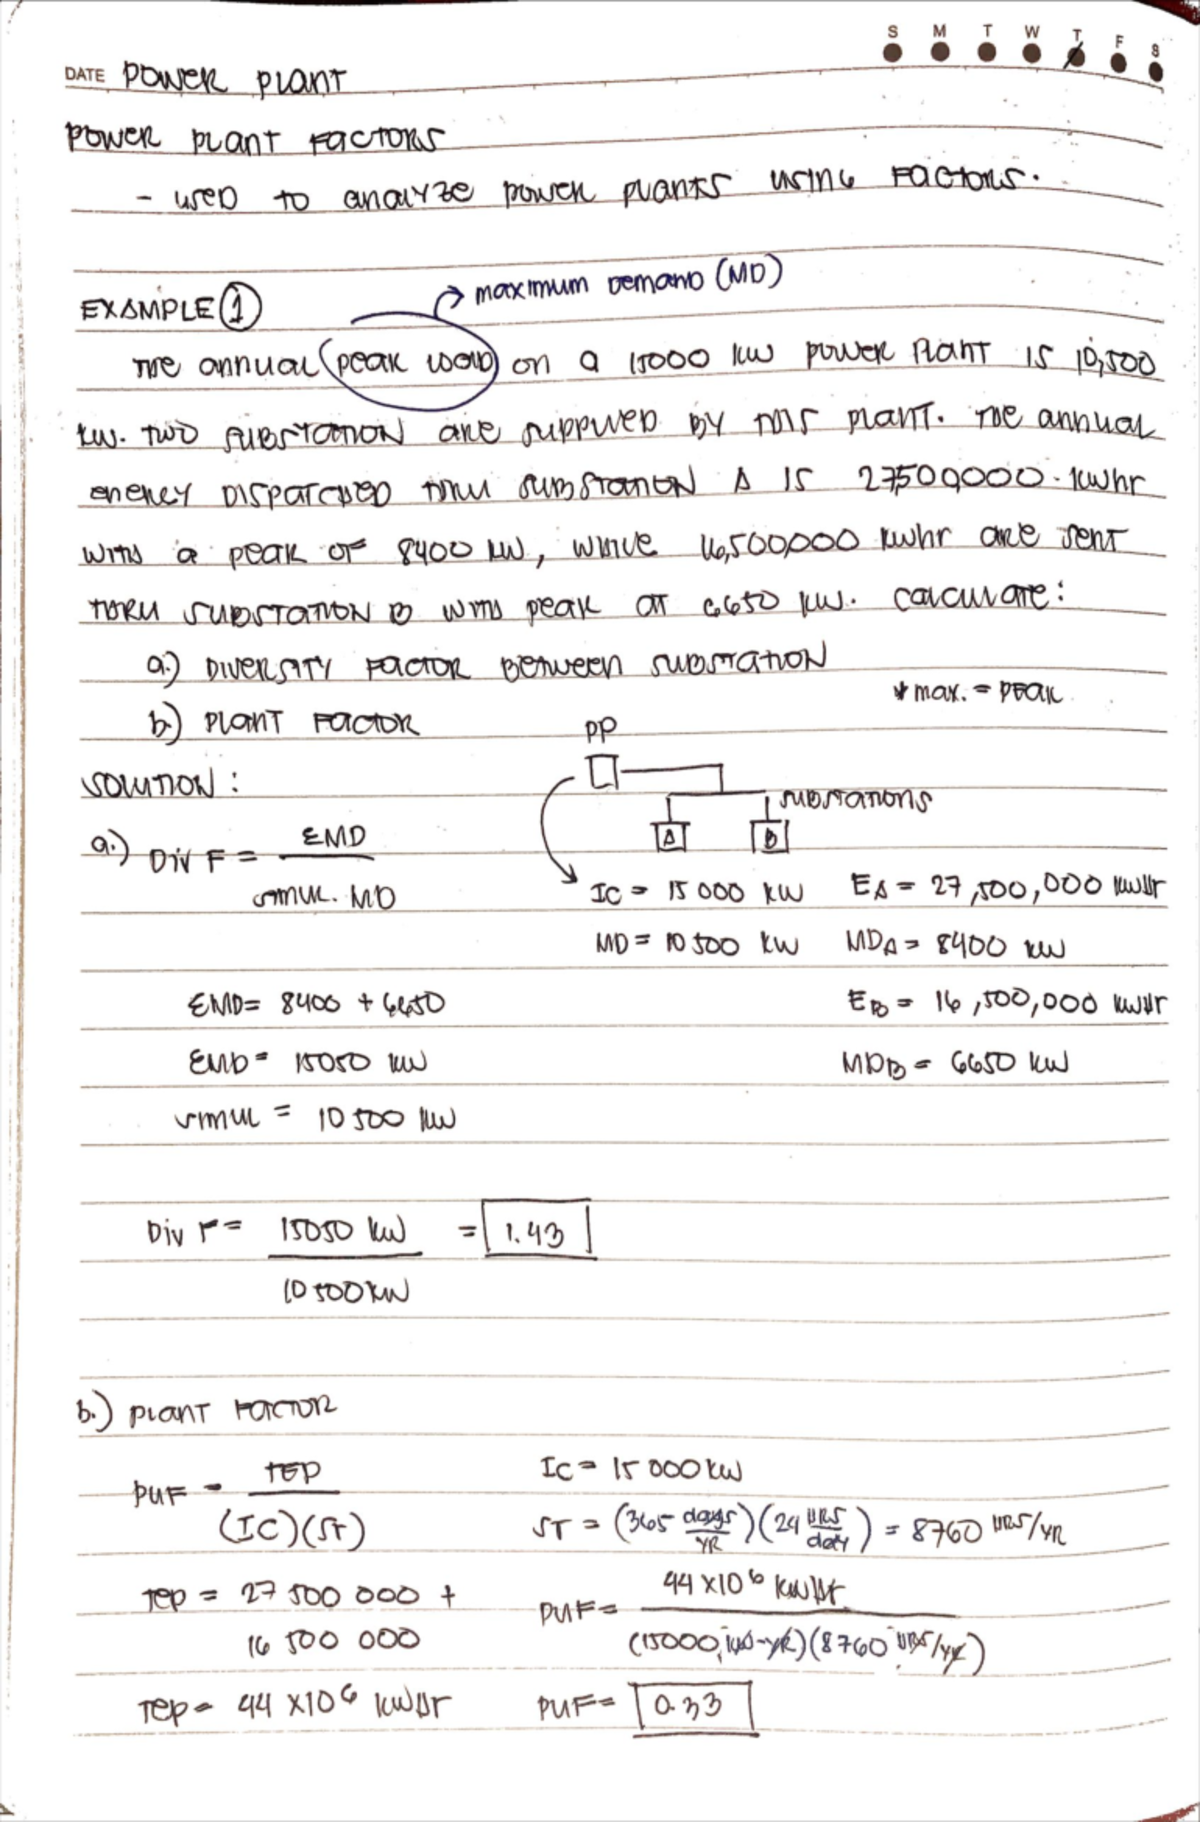 S M T W T F S
DATE POWER PLANT
POWER PLANT FACTORS
- USED TO ANALYZE POWER PLANTS USING FACTORS.
MAXIMUM DEMAND (MD)
EXAMPLE 1
THE ANNUAL PEAK LOAD ON A 15000 KW POWER PLANT IS 10,500
KW. TWO SUBSTATION ARE SUPPLIED BY THIS PLANT. THE ANNUAL
ENERGY DISPATCHED THRU SUBSTATION A IS 27,500,000 KWHR
WITH A PEAK OF 8400 KW, WHILE 16,500,000 KWHR ARE SENT
THRU SUBSTATION B WITH PEAK AT 6650 KW. CALCULATE:
a.) DIVERSITY FACTOR BETWEEN SUBSTATION
* MAX. = PEAK
b.) PLANT FACTOR
PP
SOLUTION :
SUBSTATIONS
A B
a.) DIV F = ΣMD
SIMUL. MD
IC = 15 000 KW EA = 27,500,000 KWHR
MD = 10 500 KW MDA = 8400 KW
ΣMD = 8400 + 6650 EB = 16,500,000 KWHR
ΣMD = 15050 KW MDB = 6650 KW
SIMUL = 10 500 KW
DIV F = 15050 KW = 1.43
10 500 KW
b.) PLANT FACTOR
PUF = TEP IC = 15 000 KW
(IC)(ST) ST = (365 days/YR)(24 HRS/day) = 8760 HRS/YR
TEP = 27 500 000 + PUF = 44 X10⁶ KWHR
16 500 000 (15000 KW-YR)(8760 HRS/YR)
TEP = 44 X10⁶ KWHR PUF = 0.33